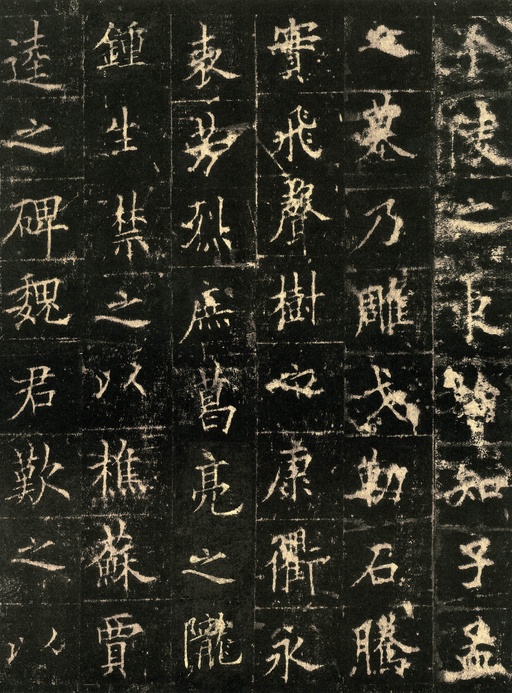 陵之東知子孟
之墓乃雕戈勒石騰
實飛聲樹之康衢永
表芳烈庶葛亮之隴
鍾生禁之以樵蘇賈
逵之碑魏君歎之以